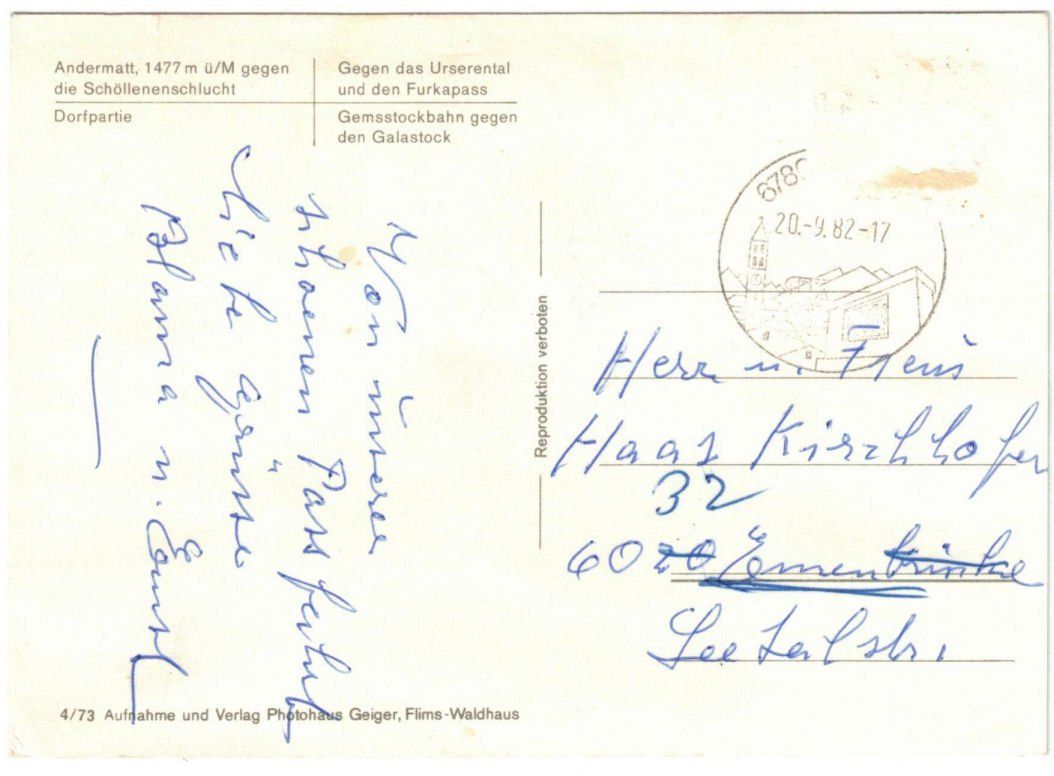 Andermatt, 1477 m ü/M gegen
die Schöllenenschlucht
Dorfpartie
Gegen das Urserental
und den Furkapass
Gemsstockbahn gegen
den Galastock
Von unserer
schoenen Pass fahrt
liebe Grüsse
u. Ernst
Reproduktion verboten
678
20.-9.82-17
Herr u.
Haas Kirchhofer
32
6020 Emmenbrücke
Seetalstr.
4/73 Aufnahme und Verlag Photohaus Geiger, Flims-Waldhaus